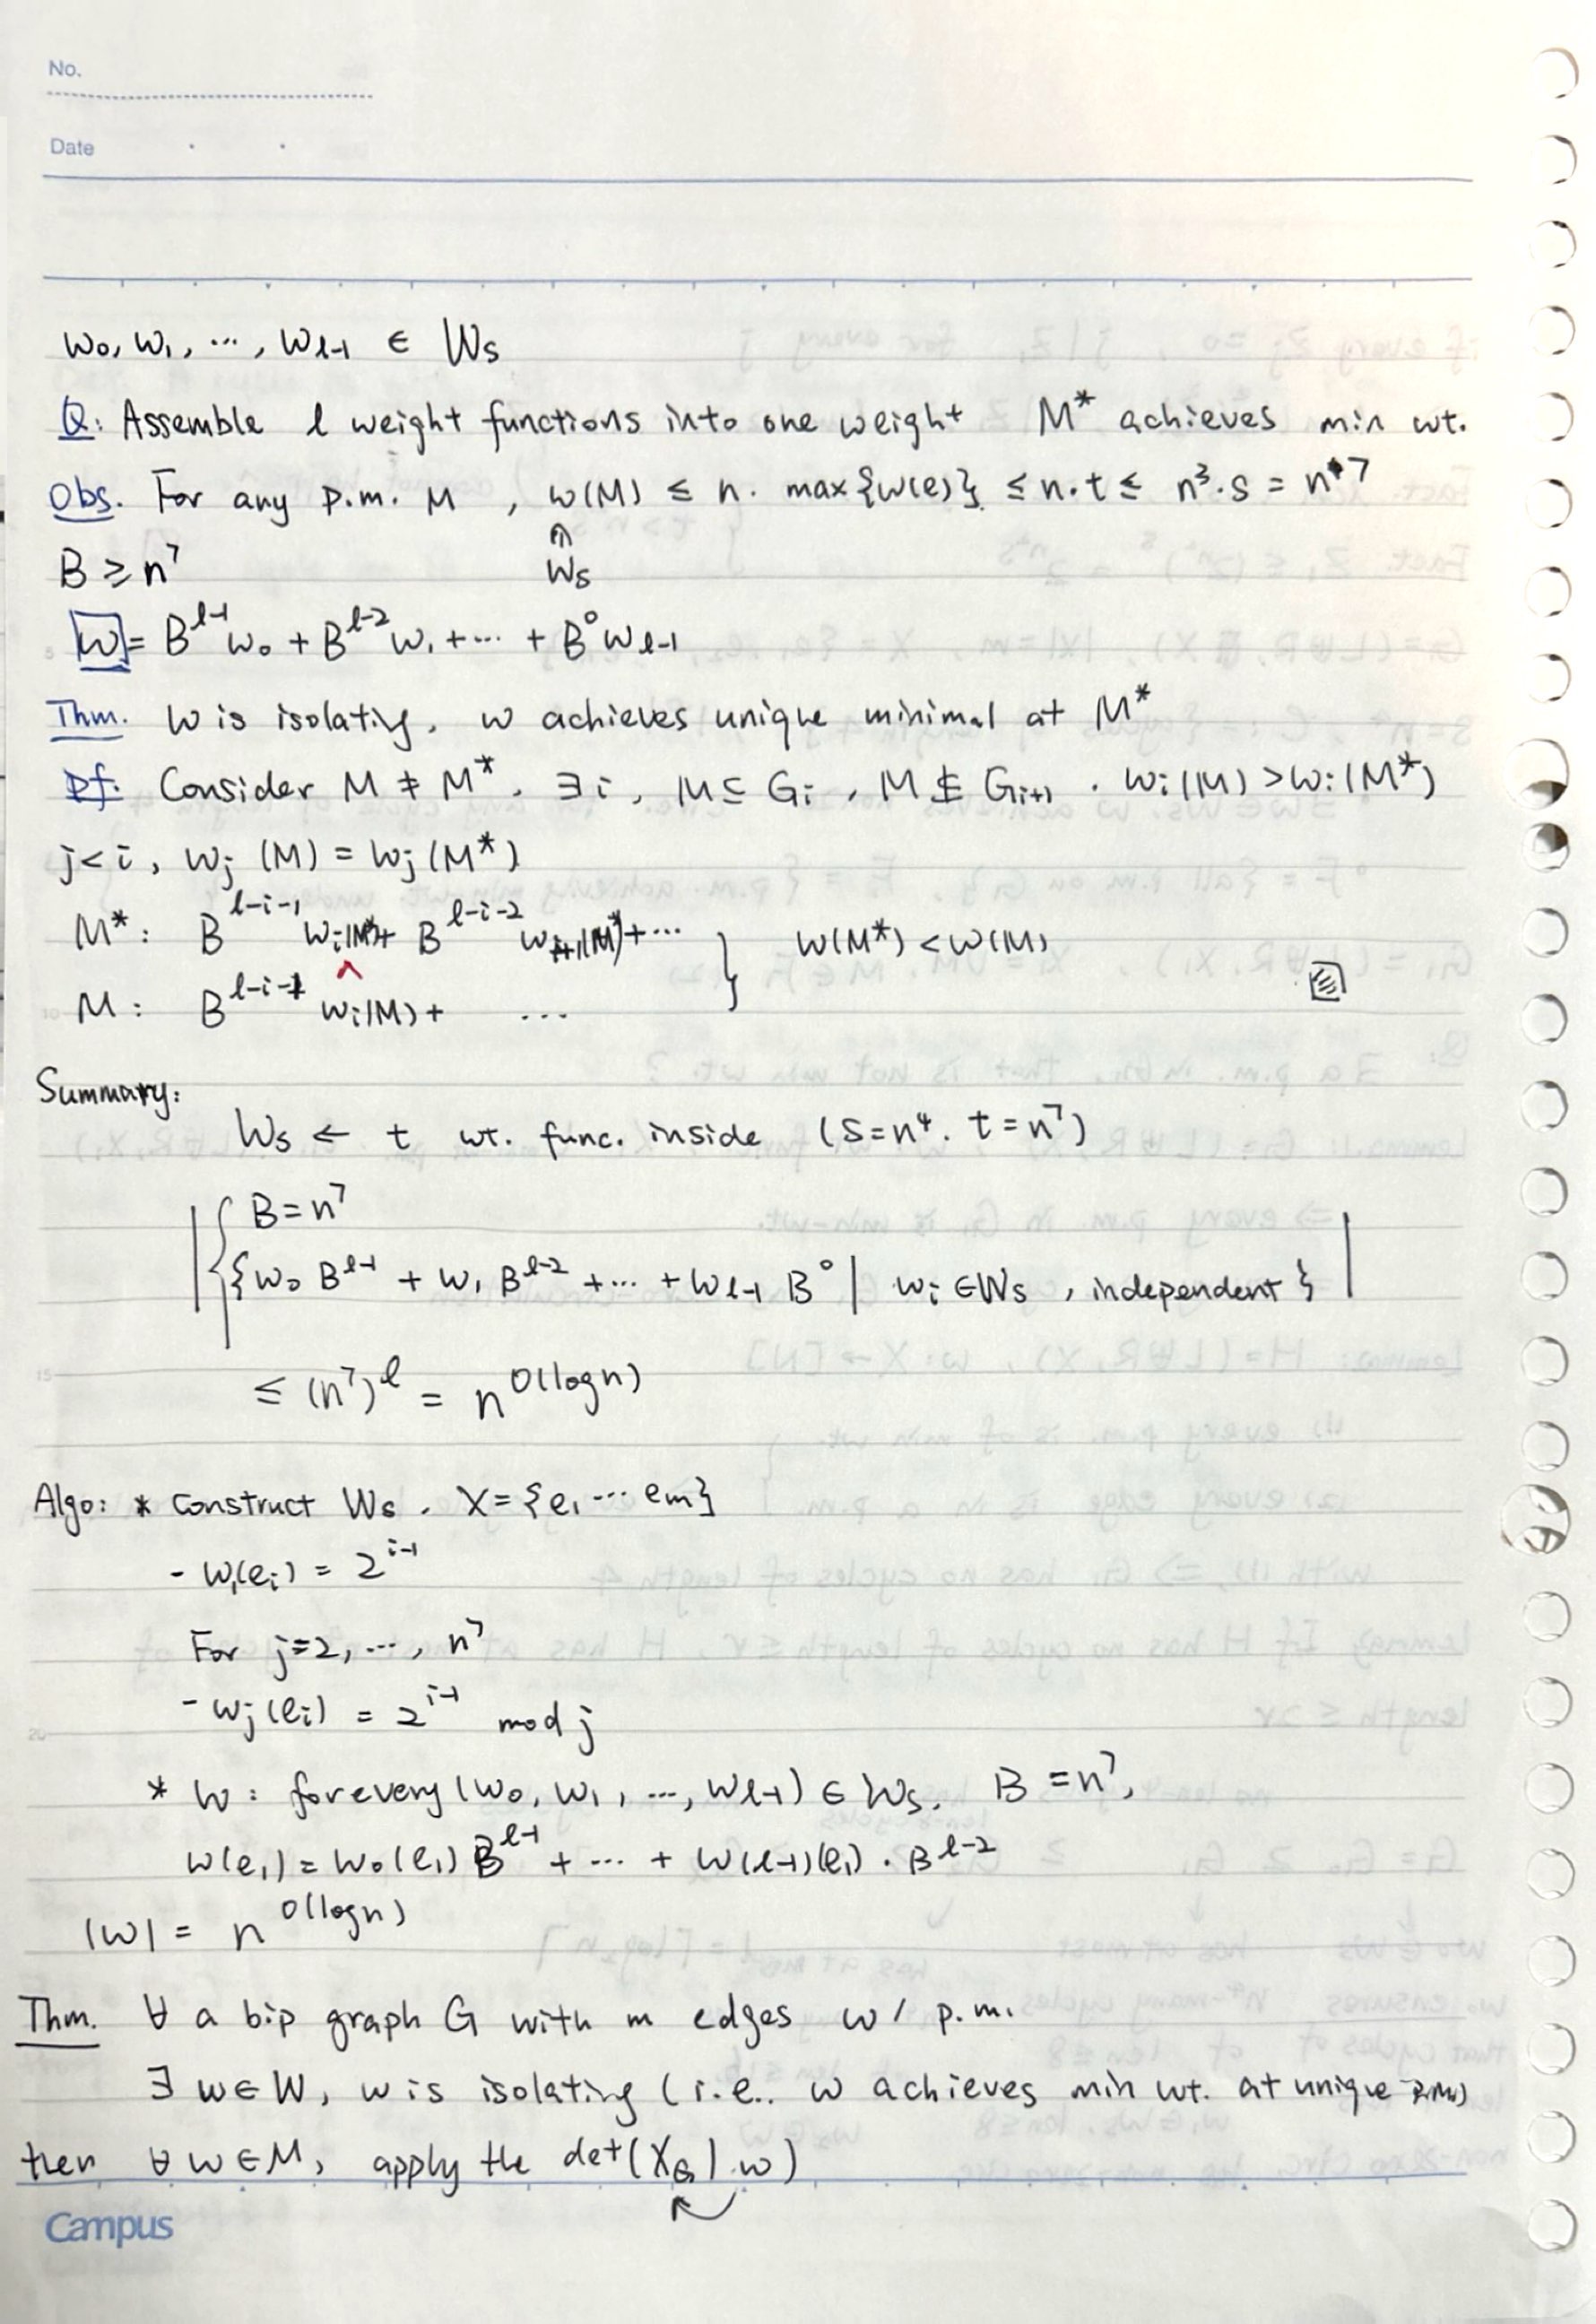 No.
Date
w₀, w₁, ⋯, w_{l-1} ∈ W_S
Q: Assemble l weight functions into one weight M* achieves min wt.
Obs. For any p.m. M, w(M) ≤ n. max{w(e)} ≤ n·t ≤ n³·s = n⁷
⋒
W_S
B ≥ n⁷
w = B^{l-1} w₀ + B^{l-2} w₁ + ⋯ + B⁰ w_{l-1}
Thm. w is isolating. w achieves unique minimal at M*
Pf: Consider M ≠ M*. ∃i, M ⊆ G_i, M ⊈ G_{i+1}. w_i(M) > w_i(M*)
j<i, w_j(M) = w_j(M*)
M*: B^{l-i-1} w_i(M*) + B^{l-i-2} w_{i+1}(M*) + ⋯ } w(M*) < w(M)
^
M: B^{l-i-1} w_i(M) + ⋯
Summary:
W_S ← t wt. func. inside (s=n⁴. t=n⁷)
| { B = n⁷
{ {w₀ B^{l-1} + w₁ B^{l-2} + ⋯ + w_{l-1} B⁰ | w_i ∈ W_S, independent} |
≤ (n⁷)^l = n^{O(log n)}
Algo: * construct W_S. X={e₁ ⋯ e_m}
- w₁(e_i) = 2^{i-1}
For j=2, ⋯, n⁷
- w_j(e_i) = 2^{i-1} mod j
* W: for every (w₀, w₁, ⋯, w_{l-1}) ∈ W_S. B = n⁷,
w(e₁) = w₀(e₁) B^{l-1} + ⋯ + w_{(l-1)}(e₁) · B^{l-2}
|W| = n^{O(log n)}
Thm. ∀ a bip graph G with m edges w/ p.m.
∃ w ∈ W, w is isolating (i.e.. w achieves min wt. at unique p.m.)
then ∀ w ∈ M, apply the det(X_G|w)
Campus